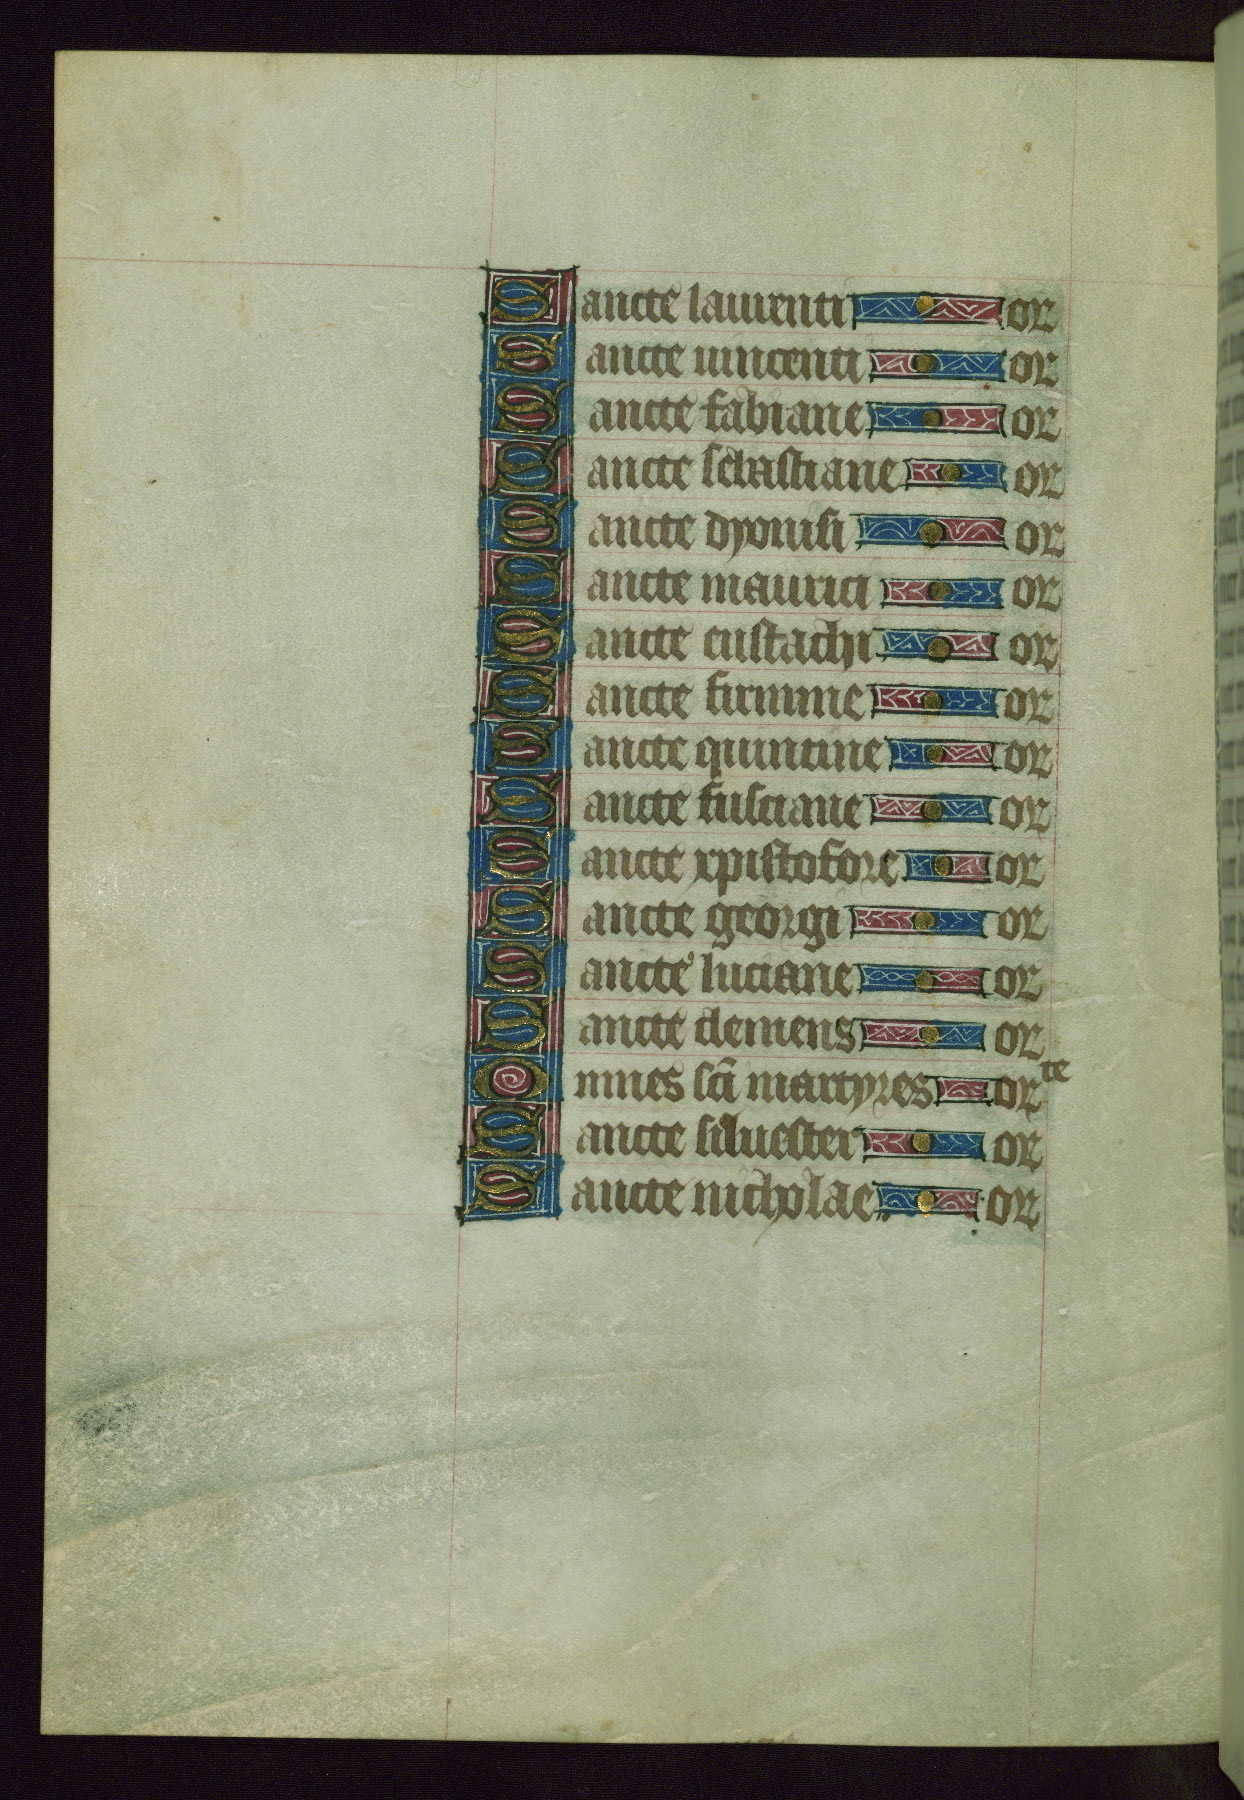 Sancte laurenti or
Sancte uincenti or
Sancte fabiane or
Sancte sebastiane or
Sancte dyonisi or
Sancte maurici or
Sancte eustachi or
Sancte firmine or
Sancte quintine or
Sancte fusciane or
Sancte xpistofore or
Sancte georgi or
Sancte luciane or
Sancte clemens or
Omnes sc̄i martyres orte
Sancte siluester or
Sancte nicholae or